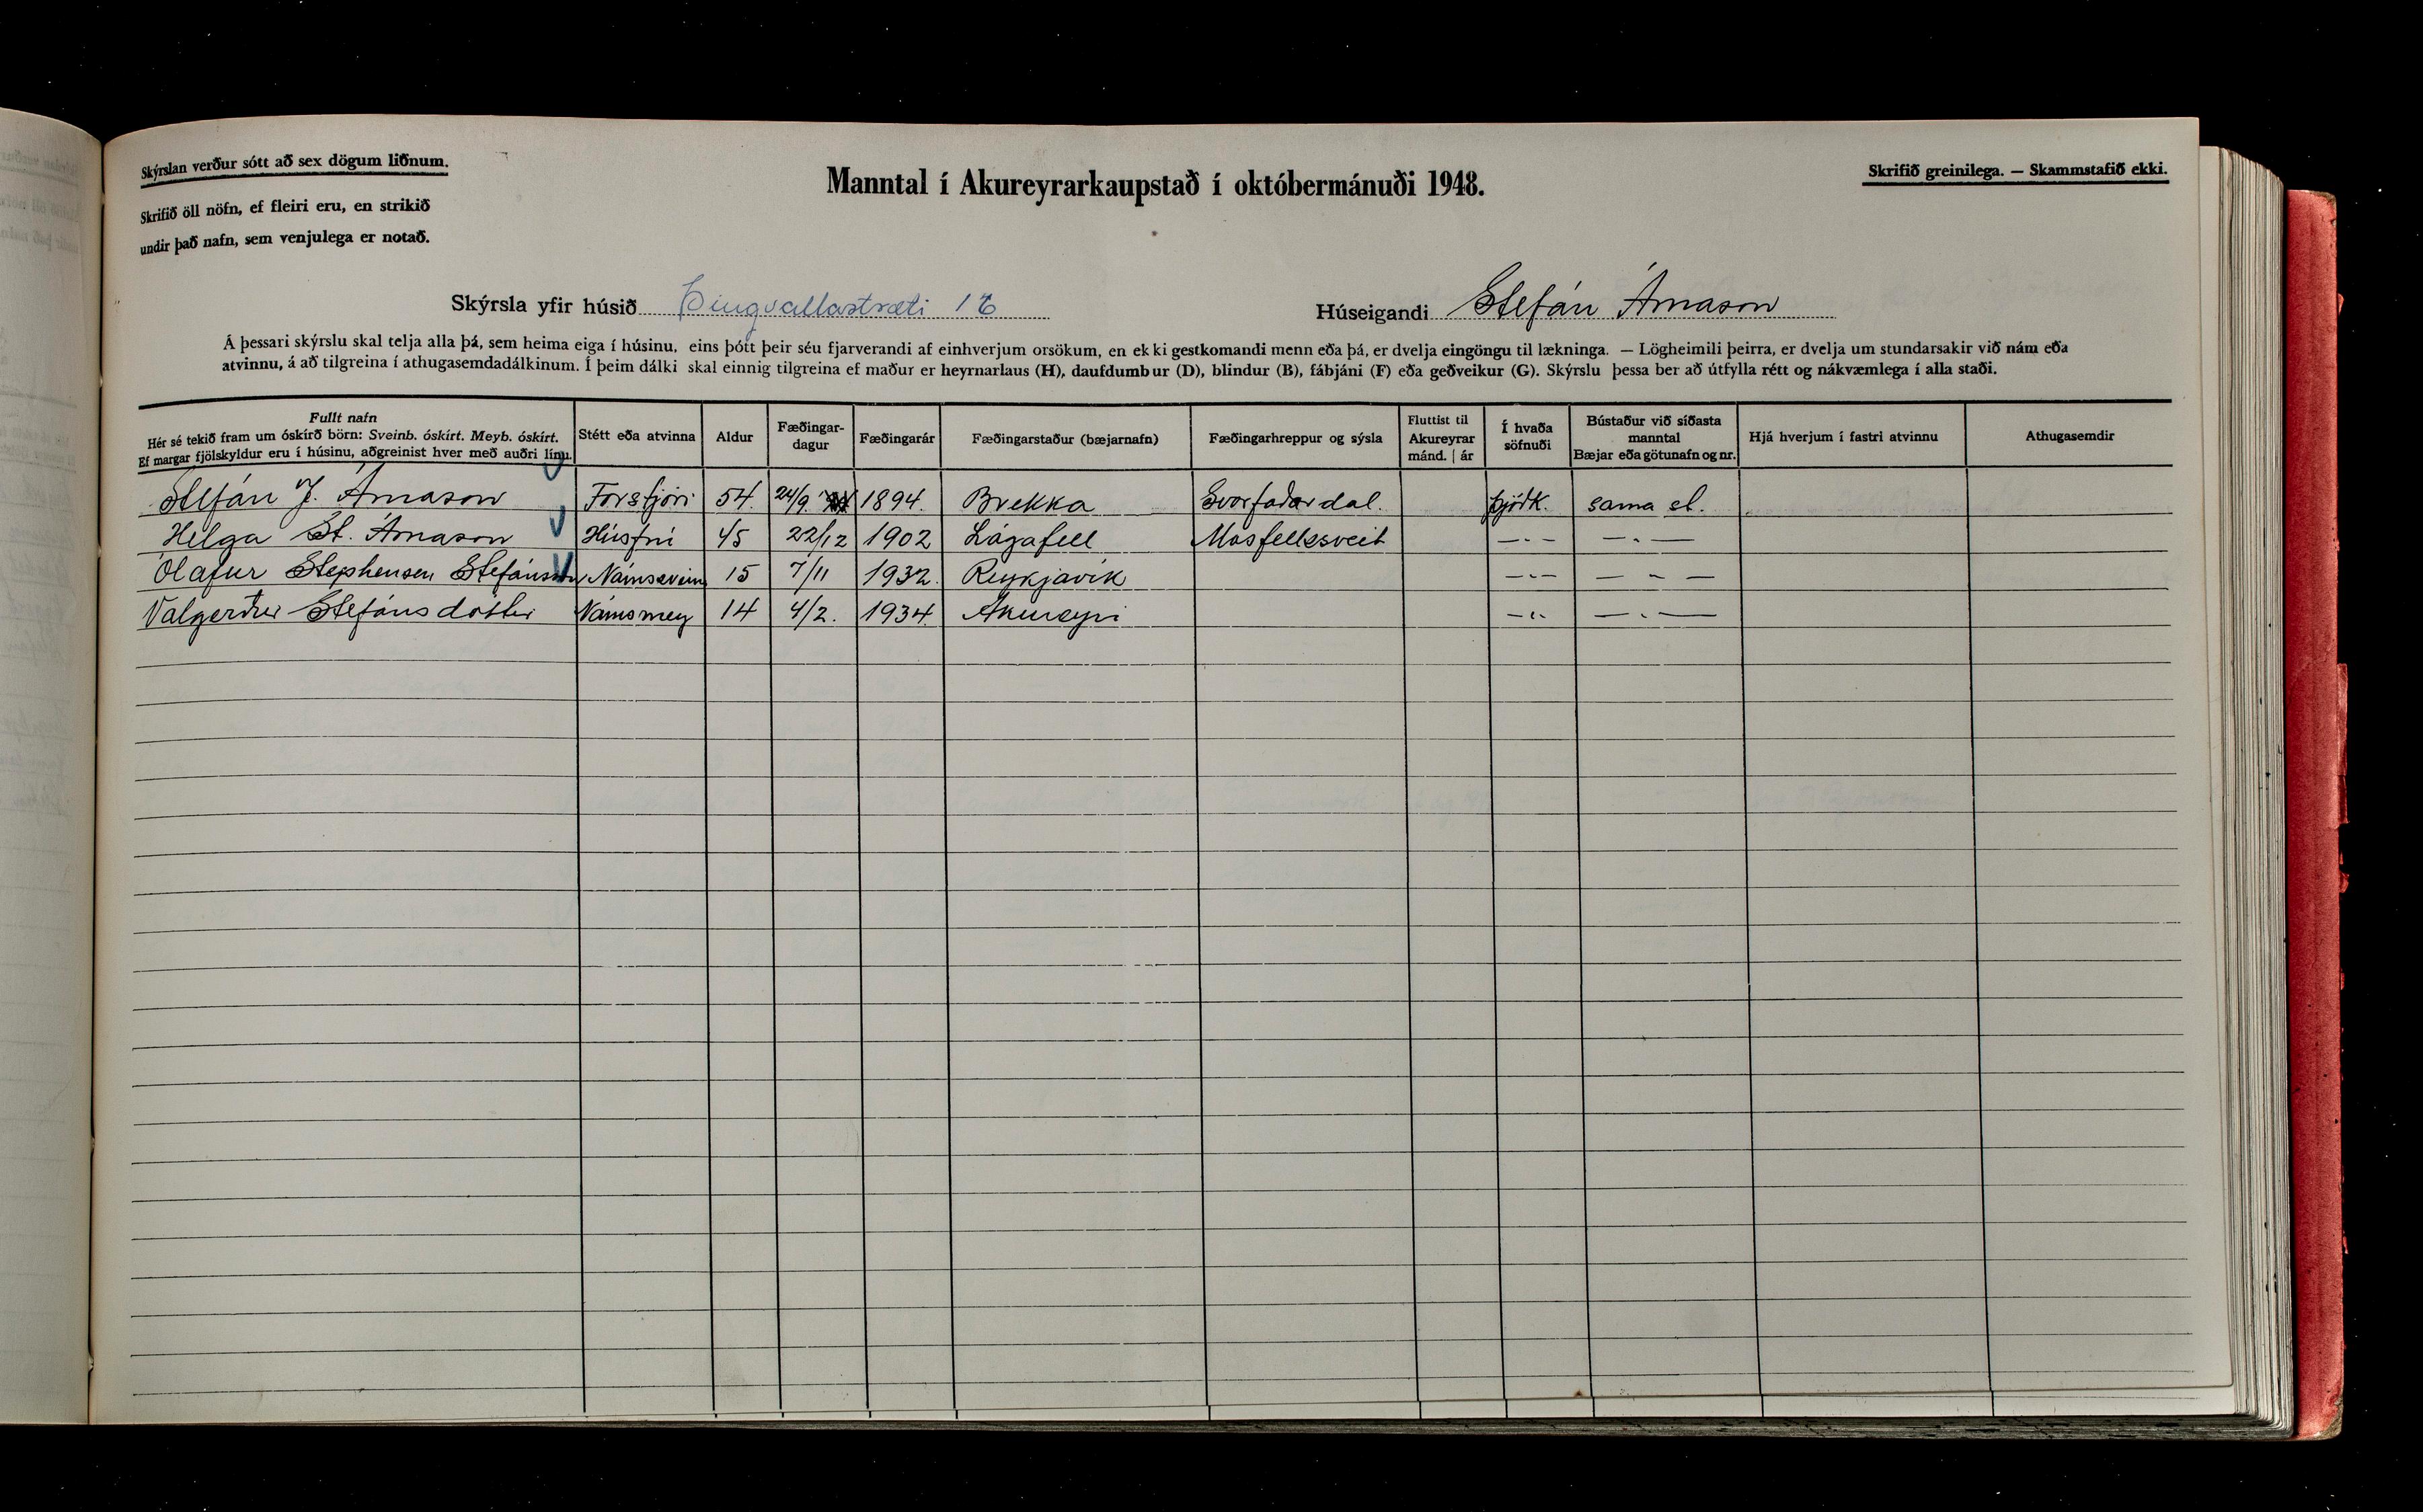 Skýrslan verður sótt að sex dögum liðnum.
Skrifið öll nöfn, ef fleiri eru, en strikið
undir það nafn, sem venjulega er notað.
Manntal í Akureyrarkaupstað í októbermánuði 1948.
Skrifið greinilega. — Skammstafið ekki.
Skýrsla yfir húsið Þingvallastræti
Húseigandi Stefán Árnason
Á þessari skýrslu skal telja alla þá, sem heima eiga í húsinu, eins þótt þeir séu fjarverandi af einhverjum orsökum, en ekki gestkomandi menn eða þá, er dvelja eingöngu til lækninga. — Lögheimili þeirra, er dvelja um stundarsakir við nám eða
atvinnu, á að tilgreina í athugasemdadálkinum. Í þeim dálki skal einnig tilgreina ef maður er heyrnarlaus (H), daufdumbur (D), blindur (B), fábjáni (F) eða geðveikur (G). Skýrslu þessa ber að útfylla rétt og nákvæmlega í alla staði.
Fullt nafn
Hér sé tekið fram um óskírð börn: Sveinb. óskírt. Meyb. óskírt.
Ef margar fjölskyldur eru í húsinu, aðgreinist hver með auðri línu.
Stétt eða atvinna
Aldur
Fæðingar-
dagur
Fæðingarár
Fæðingarstaður (bæjarnafn)
Fæðingarhreppur og sýsla
Fluttist til
Akureyrar
mánd. | ár
Í hvaða
söfnuði
Bústaður við síðasta
manntal
Bæjar eða götunafn og nr.
Hjá hverjum í fastri atvinnu
Athugasemdir
Stefán J. Árnason Forstjóri 54. 24/9. 1894. Brekka Svarfaðardal. þjóðk. sama st.
Helga St. Árnason Húsfrú 45 22/12 1902 Lágafell Mosfellssveit —"— —"—
Ólafur Stephensen Stefánsson Námssveinn 15 7/11 1932. Reykjavík —"— —"—
Valgerður Stefánsdóttir Námsmey 14 4/2. 1934. Akureyri —"— —"—